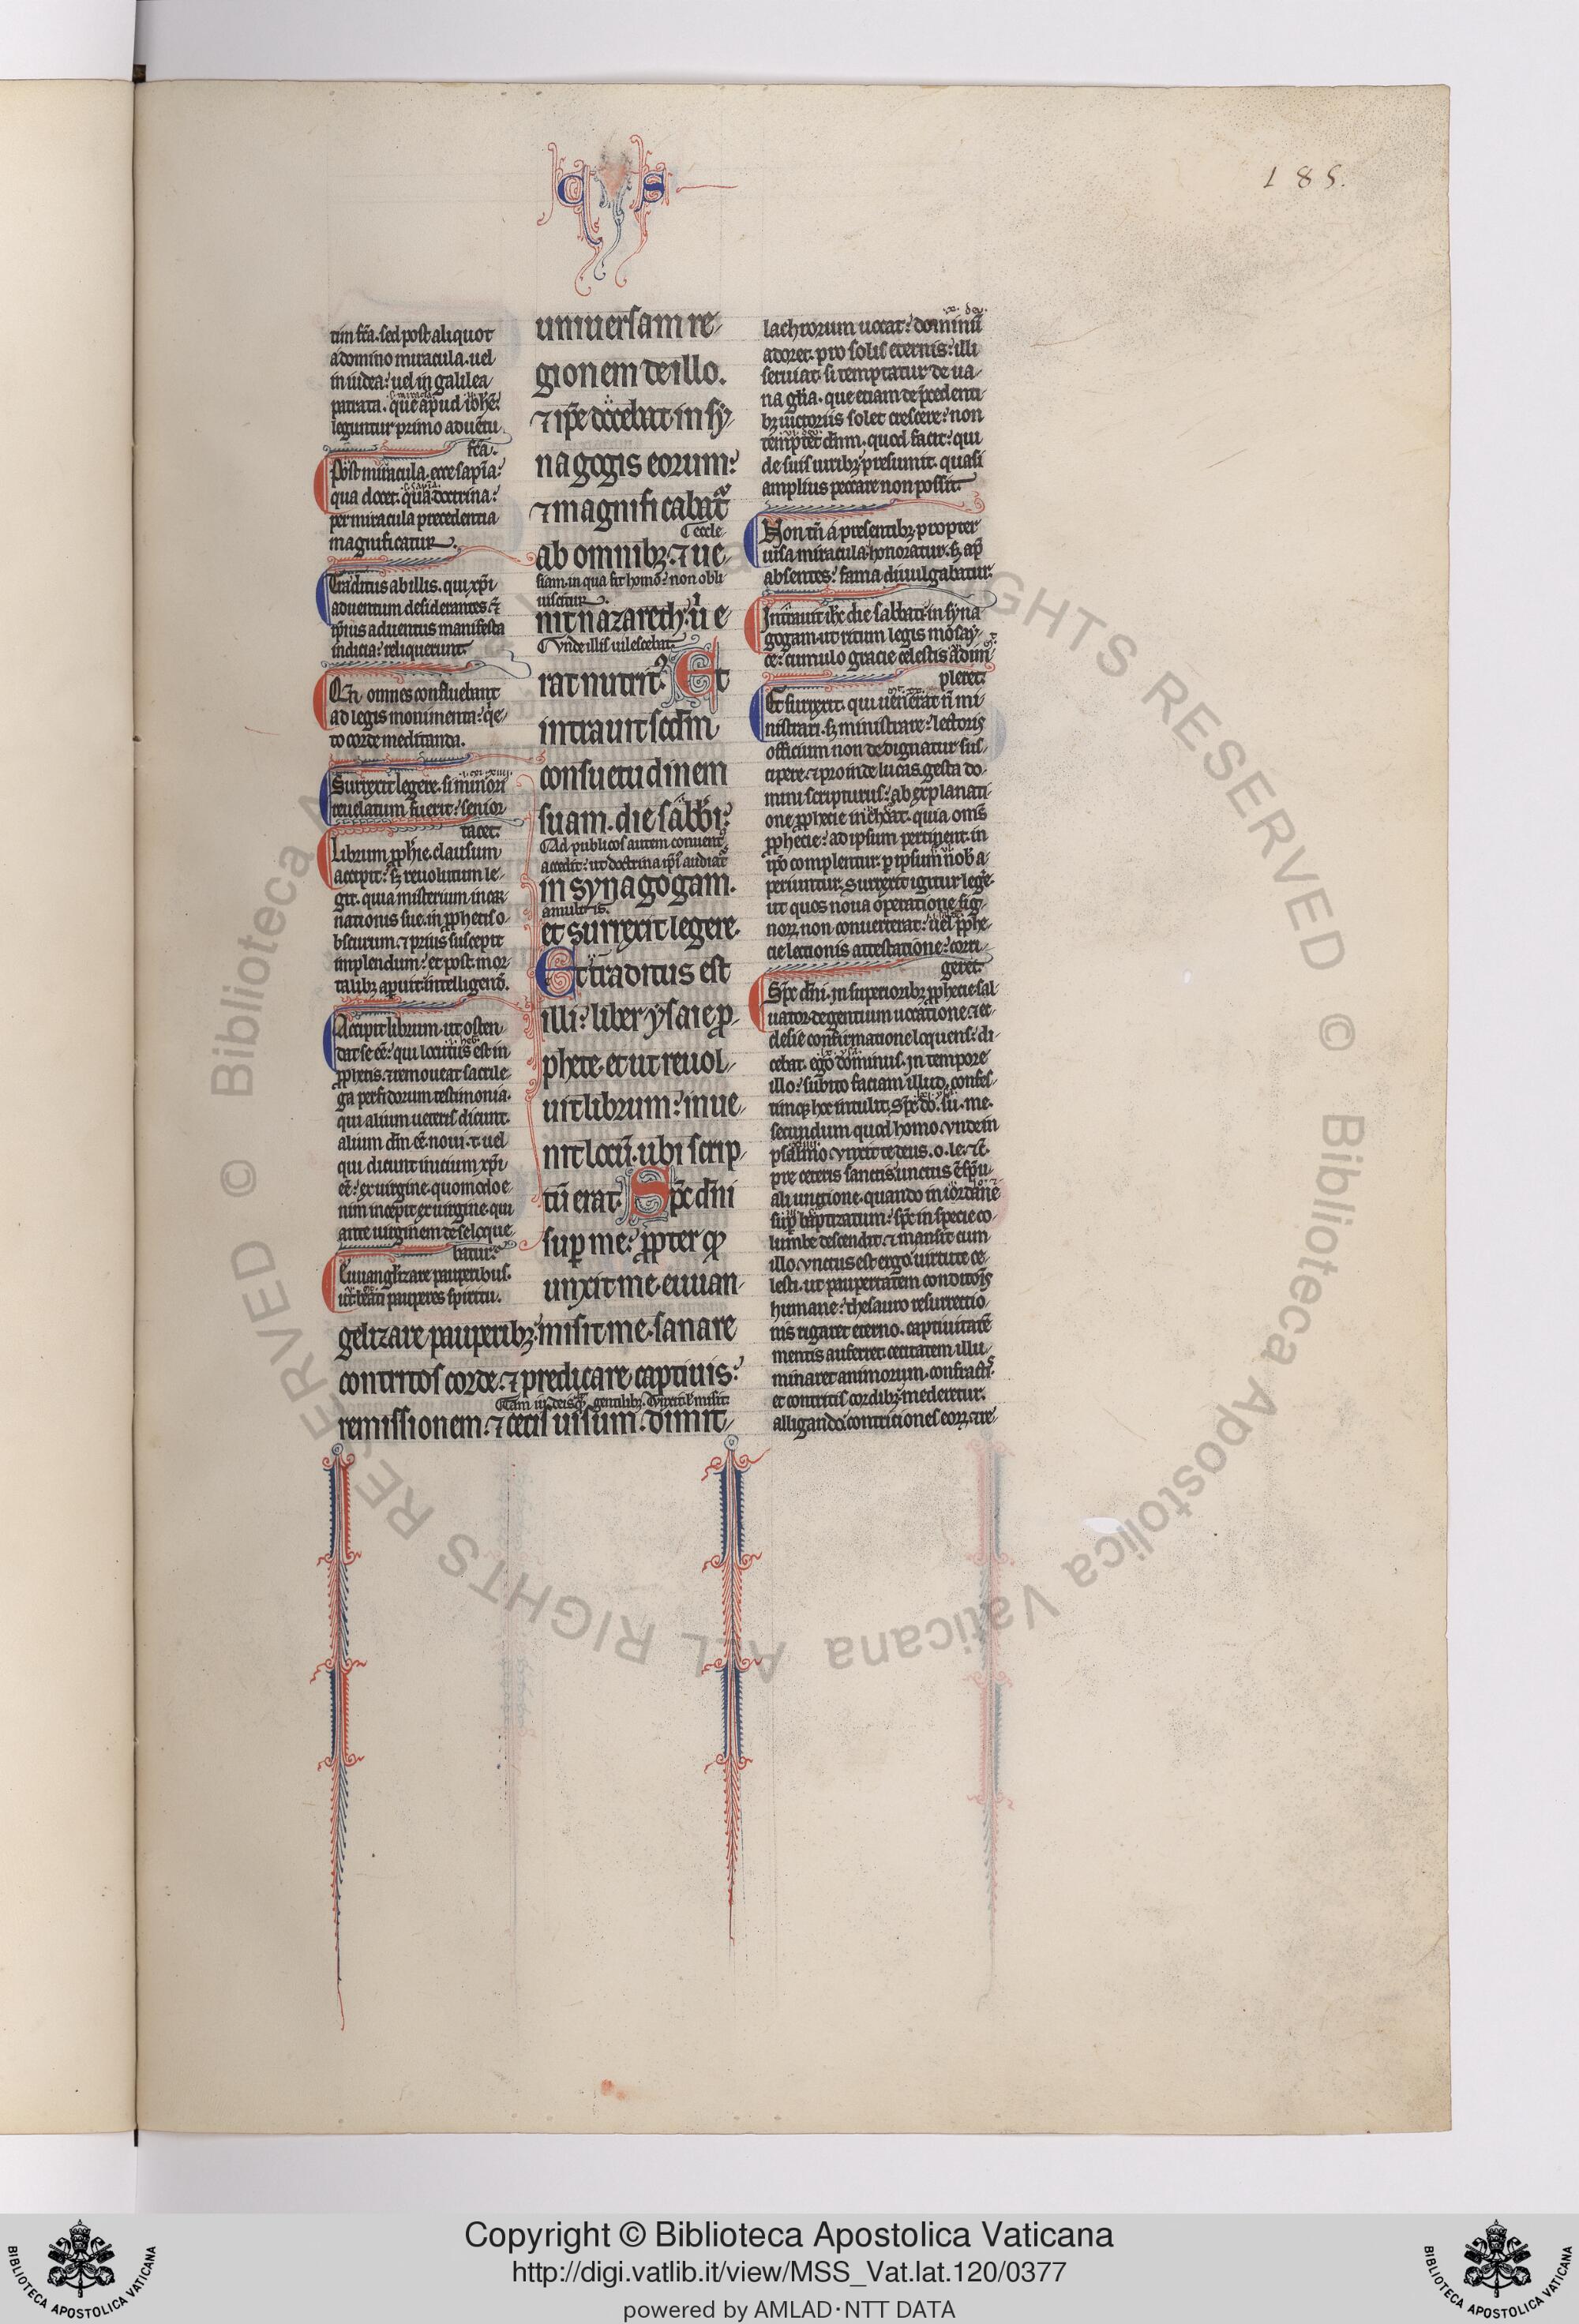 C S
185.
tim fca. sed post aliquot
a domino miracula. uel
in iudea? uel in galilea
patrata. que apud ihes?
leguntur primo aduentu
fca.
Post miracula. ecce sapia?
qua docet. qua doctrina?
per miracula precedentia
magnificatur.
Traditus ab illis. qui xpi
aduentum desiderantes
ipius aduentus manifesta
indicia? reliquerunt.
omnes confluebant
ad legis monumenta? 
to corde meditanda.
Surrexit legere. si minori
reuelatum fuerit? senior
tacet.
Librum pphie clausum
accepit? sz reuolutum le-
git. quia misterium incar
nationis sue. in pphetis o-
bscurum. ⁊ prius suscepit
implendum? et post mor
talibz aperuit intelligend.
Accipit librum. ut osten
dat se ee? qui locutus est in
pphetis. ⁊ remoueat sacrile
ga perfidorum testimonia.
qui alium ueteris dicunt.
alium dm ee noui. t uel
qui dicunt inicium xpi
ee? ex uirgine. quomodo e-
nim incepit ex uirgine. qui
ante uirginem de se loque
batur?
Euuanglizare pauperibus.
ut beati pauperes spiritu.
uniuersam re-
gionem de illo.
⁊ ipe docebat in sy-
nagogis eorum?
⁊ magnificabat
eccle-
ab omnibz. ⁊ ue-
siam. in qua sit homo? non obli
uiscitur.
nit nazareth. u e
Vnde illis uilescebat.
rat nutrit? Et
intrauit scdm
consuetudinem
suam. die sabbi?
Ad publicos autem conuent
accedit? ut doctrina ipi audiat
in synagogam.
a multis.
et surrexit legere.
Et traditus est
illi? liber ysaie p-
phete. et ut reuol-
uit librum? inue-
nit locu. ubi scrip-
tu erat. Spc dni
sup me? ppter q
unxit me. euuan-
gelizare pauperibz? misit me. sanare
contritos corde. ⁊ predicare captiuis?
Tam iudeis gentilibz. misit.
remissionem. ⁊ cecis uisum. dimit-
lachrorum uocat? dominu
adoret. pro solis eternis? illi
seruiat. si temptatur de ua-
na gla. que etiam de predenti
bz uictoriis solet crescere? non
temptet dnm. quod facit? qui
de suis uiribz presumit. quasi
amplius peccare non possit.
Non tn a presentibz propter
uisa miracula honoratur. sz ap
absentes? fama diuulgabatur.
Intrauit ihc die sabbati in syna
gogam. ut ritum legis mosay-
ce? cumulo gracie celestis adim
pleret.
Et surrexit. qui uenerat n mi-
nistrari. sz ministrare? lectoris
officium non dedignatur sus-
cipere. ⁊ proinde lucas. gesta do-
mini scripturus? ab explanati-
one pphecie inchoat. quia oms
pphecie? ad ipsum pertinent. in
ipo complentur. p ipsum nob a-
periuntur. Surrexit igitur lege.
ut quos noua operatione sig-
norz non conuerterat? uel pphe-
cie lectionis attestatione? corri-
geret.
Spc dni. In superioribz pphecie sal-
uator de gentium uocatione. ⁊ ec-
clesie confirmatione loquens? di-
cebat. ego dominus. in tempore
illo? subito faciam illud. confes-
timqz hec intulit. Spc do. su. me.
secundum quod homo. vnde in
psalmo. vnxit te deus. o. le. ⁊c.
pre ceteris sanctis. unctus e spu-
ali unctione. quando in iordane
sup baptizatum? spc in specie co-
lumbe descendit. ⁊ mansit cum
illo. vnctus est ergo. uirtute ce-
lesti. ut paupertatem conditois
humane? thesauro resurrectio-
nis rigaret eterno. captiuitate
mentis auferret. cecitatem illu-
minaret animorum. confractis
et contritis cordibz mederetur.
alligando contriciones eorz. ⁊ re-
Copyright © Biblioteca Apostolica Vaticana
http://digi.vatlib.it/view/MSS_Vat.lat.120/0377
powered by AMLAD·NTT DATA
BIBLIOTECA APOSTOLICA VATICANA
BIBLIOTECA APOSTOLICA VATICANA
© Biblioteca Apostolica Vaticana ALL RIGHTS RESERVED